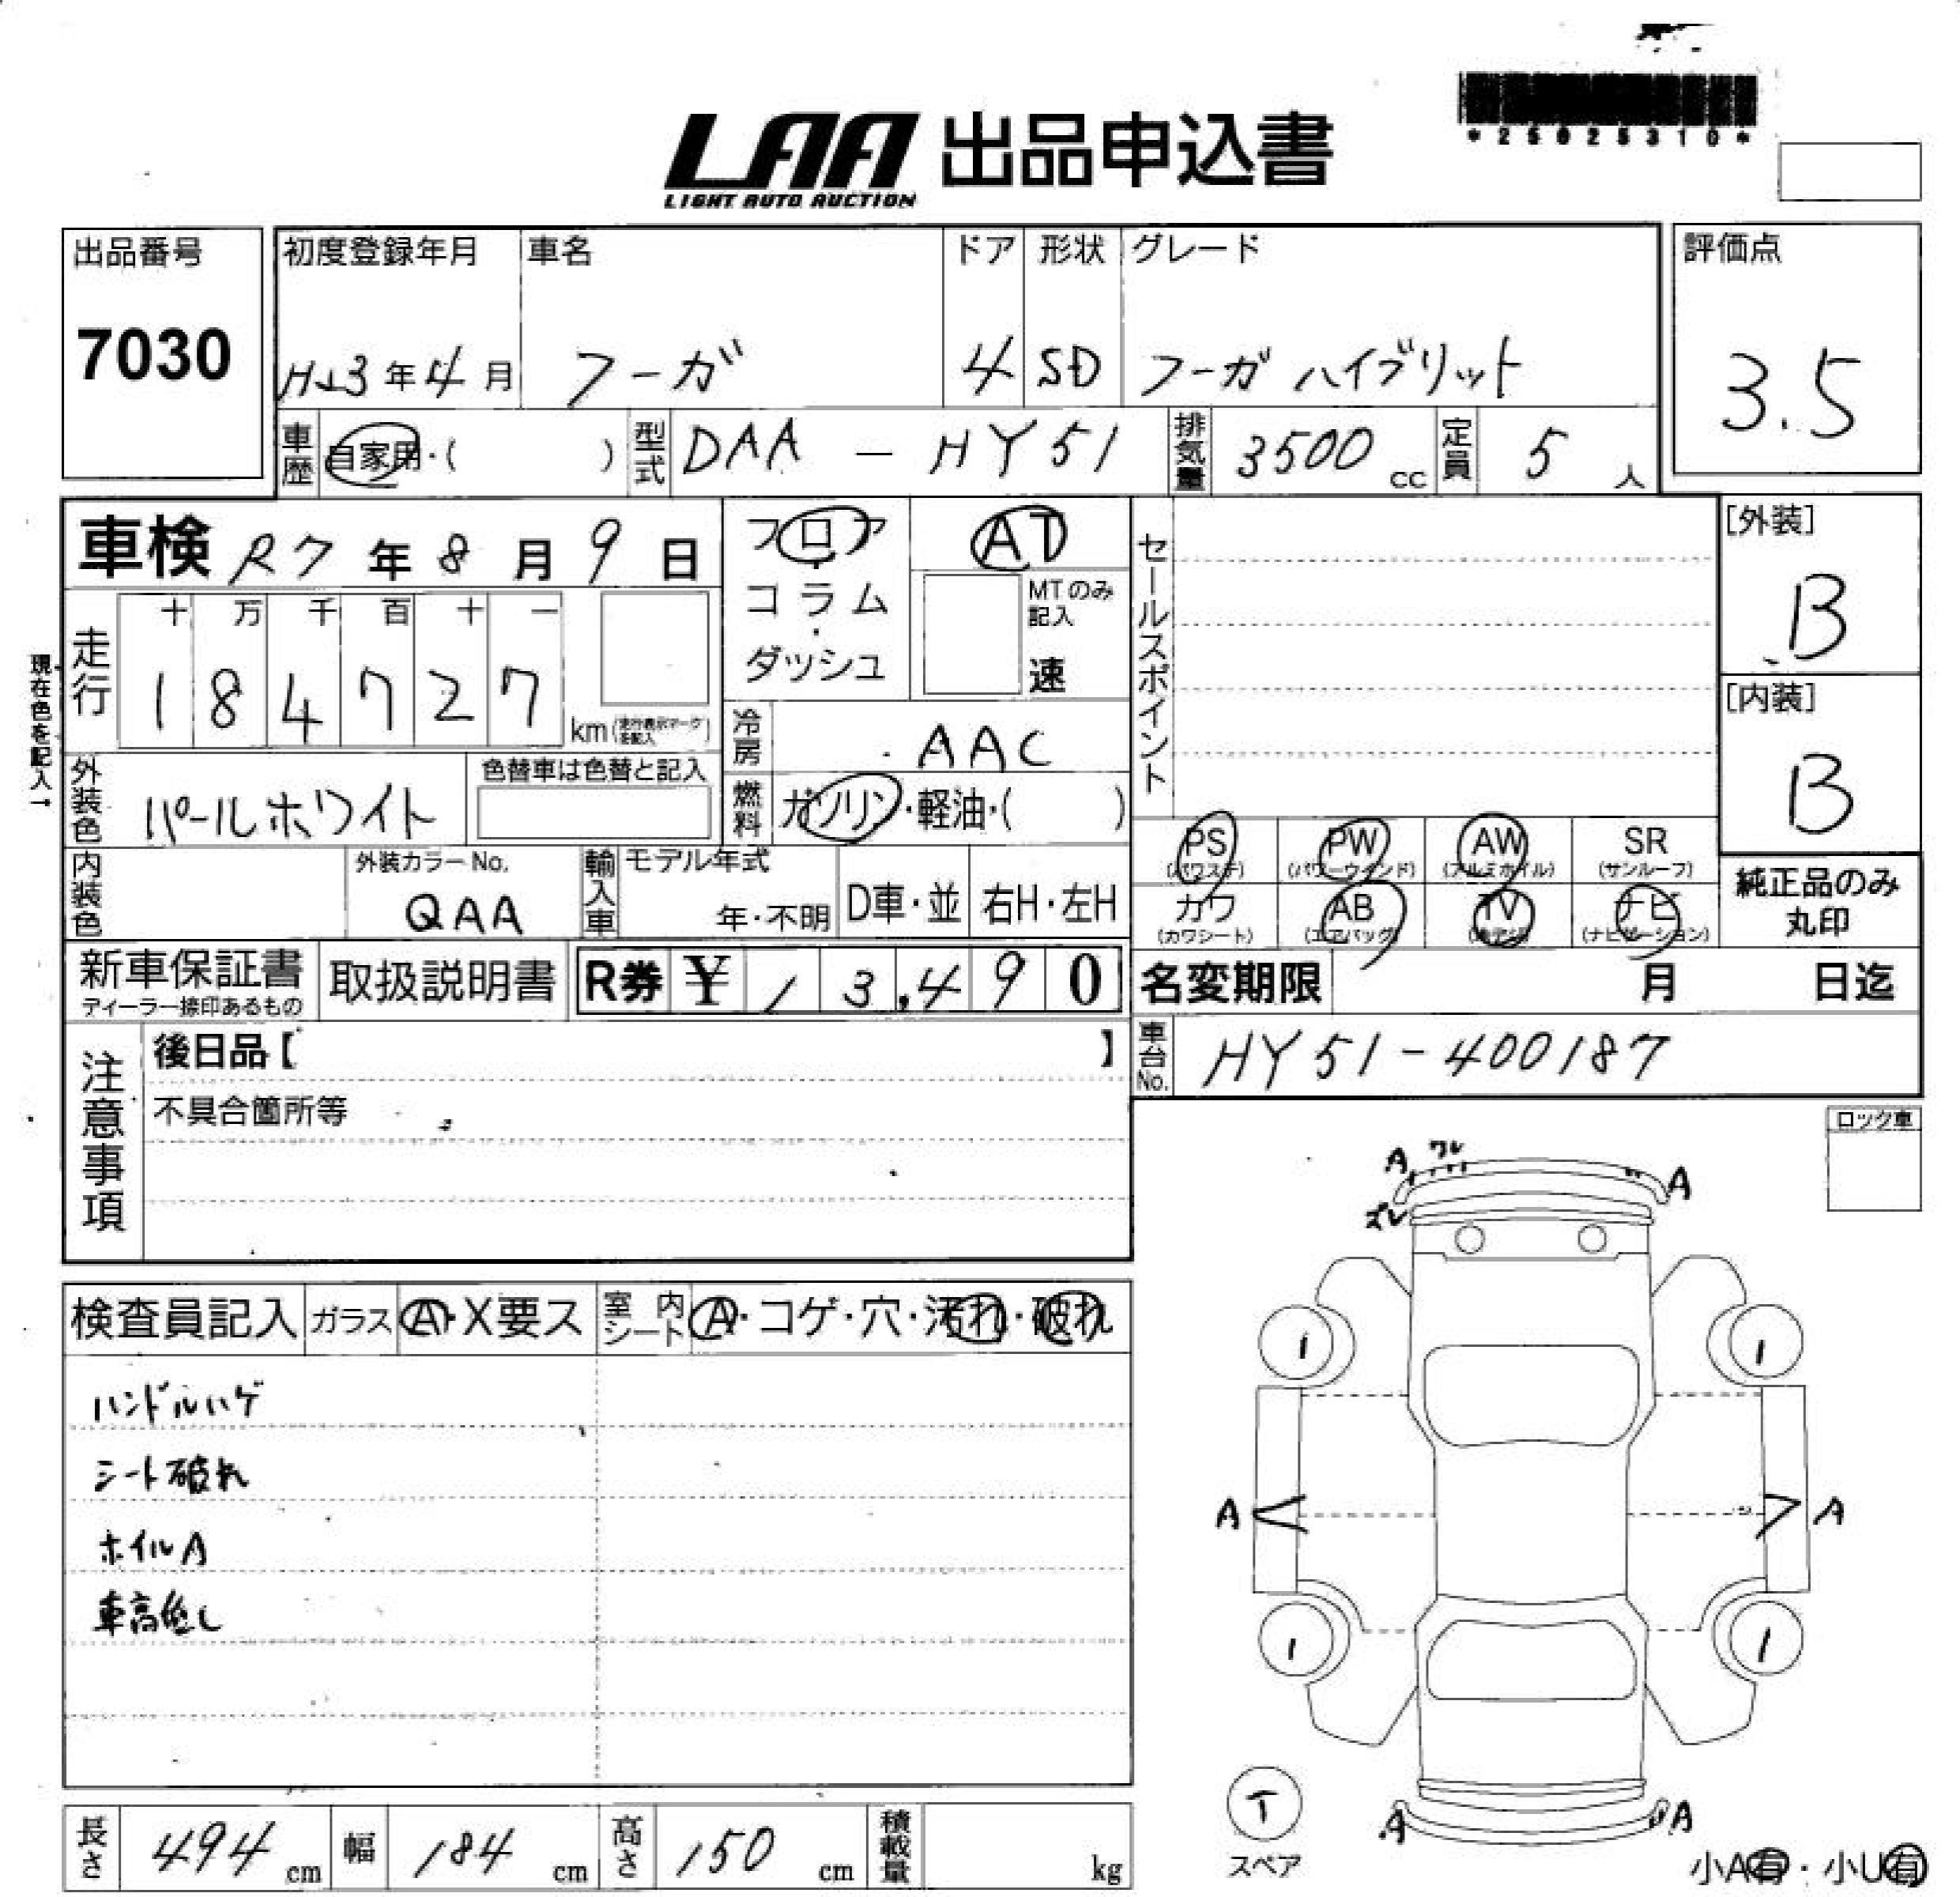 *25025310*
LAA 出品申込書
LIGHT AUTO AUCTION
出品番号 初度登録年月 車名 ドア 形状 グレード 評価点
7030 H23年4月 フーガ 4 SD フーガ ハイブリット 3.5
車歴 自家用・( ) 型式 DAA — HY51 排気量 3500 cc 定員 5 人
車検 R7年8月9日
フロア・コラム・ダッシュ
AT
MTのみ記入
速
セールスポイント
[外装]
B
現在色を記入→
走行 十 万 千 百 十 一
1 8 4 7 2 7 km(走行表示マークを記入)
[内装]
B
冷房 AAC
外装色 パールホワイト 色替車は色替と記入
燃料 ガソリン・軽油・( )
PS PW AW SR
(パワステ) (パワーウインド) (アルミホイル) (サンルーフ)
カワ AB TV ナビ
(カワシート) (エアバッグ) (ナビゲーション)
純正品のみ
丸印
内装色 外装カラーNo. QAA 輸入車 モデル年式 年・不明 D車・並 右H・左H
新車保証書 取扱説明書 R券 ¥ 13,490 名変期限 月 日迄
ディーラー捺印あるもの
注意事項
後日品【 】
車台No. HY51-400187
不具合箇所等
ロック車
A ワレ A
ズレ
検査員記入 ガラス A・X要ス 室内シート A・コゲ・穴・汚れ・破れ
1 1
ハンドルハゲ
シート破れ
A A
ホイルA
車高低し
1 1
T
スペア
A A
長さ 494 cm 幅 184 cm 高さ 150 cm 積載量 kg
小A有・小U有